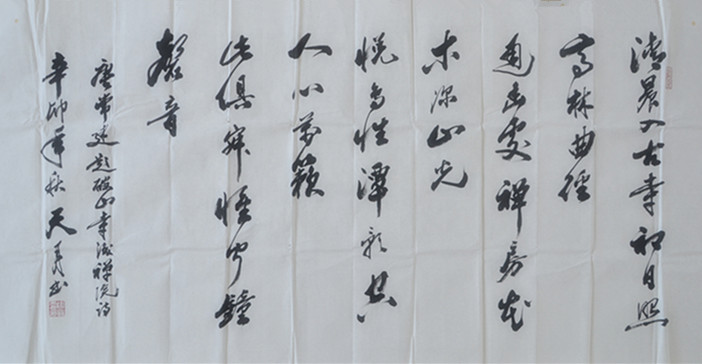 清晨入古寺初日照
高林曲徑
通幽處禪房花
木深山光
悅鳥性潭影空
人心萬籟
此俱寂惟聞鐘
磬音
唐常建題破山寺後禪院詩
辛卯年秋天書